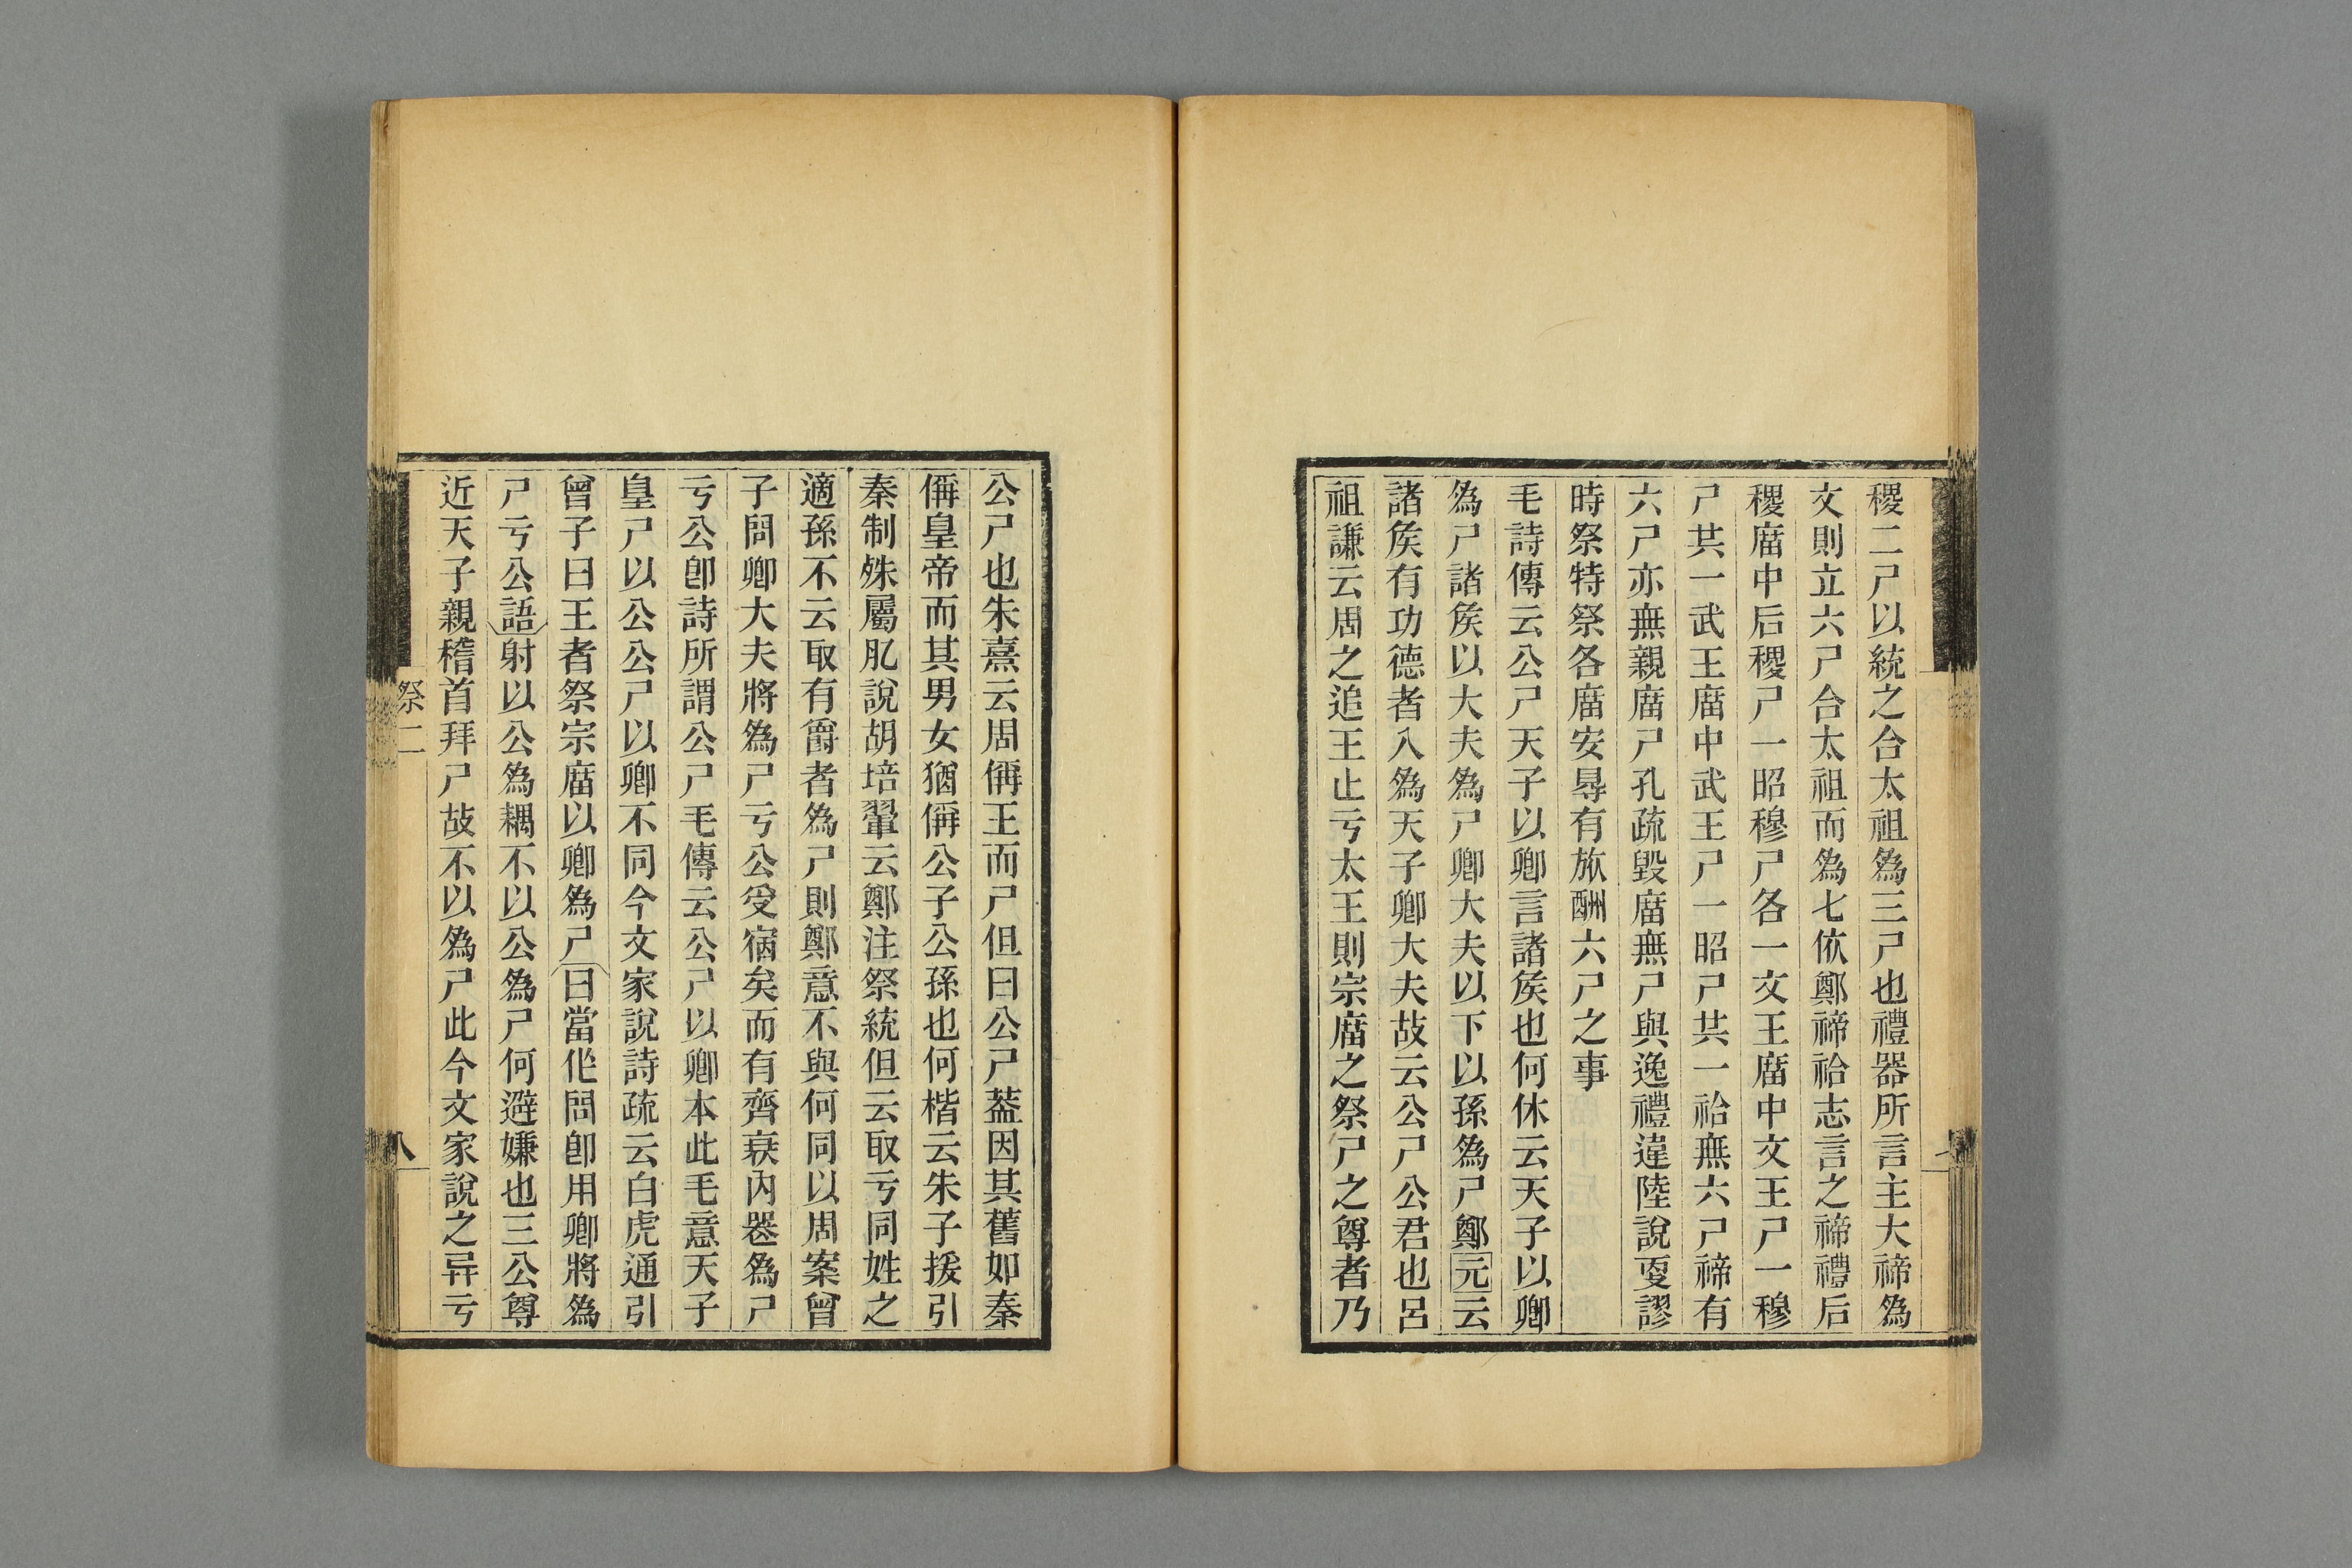 稷二尸以統之合太祖爲三尸也禮器所言主大禘爲
文則立六尸合太祖而爲七依鄭禘祫志言之禘禮后
稷庿中后稷尸一昭穆尸各一文王庿中文王尸一穆
尸共一武王庿中武王尸一昭尸共一祫無六尸禘有
六尸亦無親庿尸孔疏毀庿無尸與逸禮違陸說㪅謬
時祭特祭各庿安㝵有旅酬六尸之事
毛詩傳云公尸天子以卿言諸矦也何休云天子以卿
爲尸諸矦以大夫爲尸卿大夫以下以孫爲尸鄭元云
諸矦有功德者入爲天子卿大夫故云公尸公君也呂
祖謙云周之追王止亏太王則宗庿之祭尸之尊者乃
公尸也朱熹云周偁王而尸但曰公尸葢因其舊如秦
偁皇帝而其男女猶偁公子公孫也何楷云朱子援引
秦制殊屬肊說胡培翬云鄭注祭統但云取亏同姓之
適孫不云取有爵者爲尸則鄭意不與何同以周案曾
子問卿大夫將爲尸亏公受宿矣而有齊衰內喪爲尸
亏公卽詩所謂公尸毛傳云公尸以卿本此毛意天子
皇尸以公公尸以卿不同今文家說詩疏云白虎通引
曾子曰王者祭宗庿以卿爲尸曰當作問卽用卿將爲
尸亏公語射以公爲耦不以公爲尸何避嫌也三公尊
近天子親稽首拜尸故不以爲尸此今文家說之异亏
祭二
八